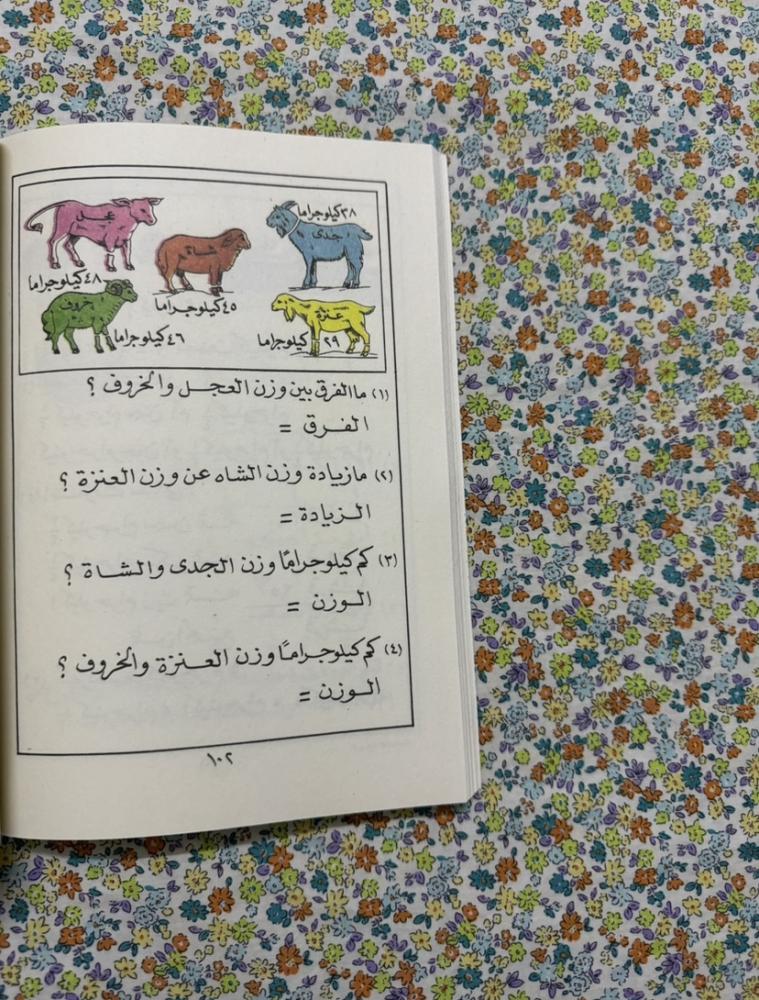 عجل
٤٨ كيلوجراما
شاة
٤٥ كيلوجراما
٣٨ كيلوجراما
جدى
خروف
٤٦ كيلوجراما
عنزة
٢٩ كيلوجراما
(١) ما الفرق بين وزن العجل والخروف ؟
الفرق =
(٢) ما زيادة وزن الشاه عن وزن العنزة ؟
الزيادة =
(٣) كم كيلوجرامًا وزن الجدى والشاة ؟
الوزن =
(٤) كم كيلوجرامًا وزن العنزة والخروف ؟
الوزن =
١٠٢